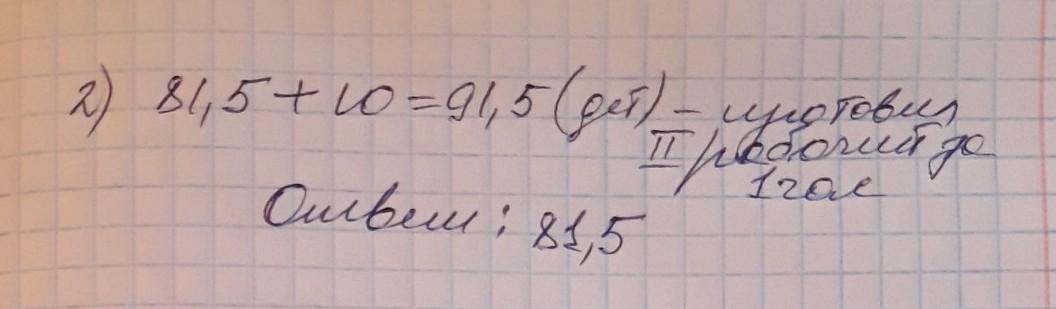 2) 81,5 + 10 = 91,5 (дет) – изготовил
II рабочий за
1 час
Ответ: 81,5